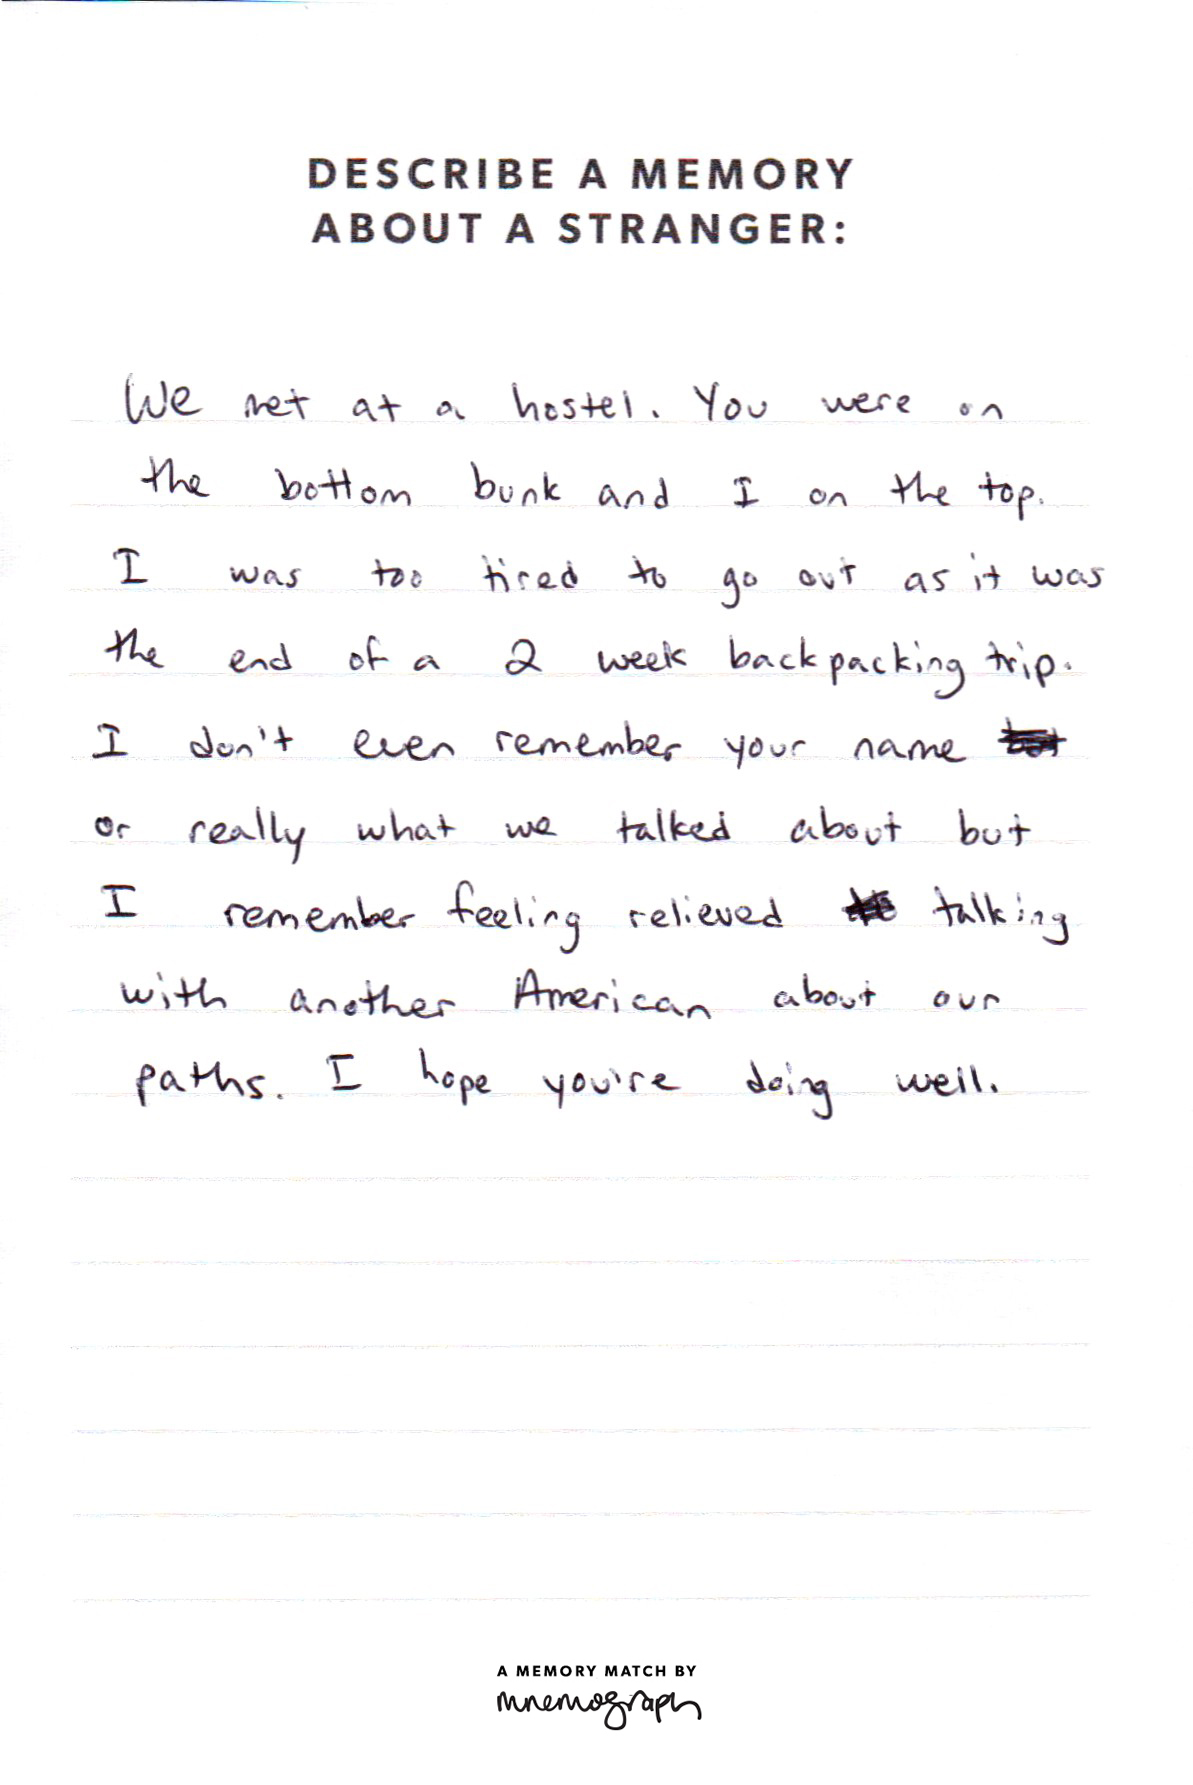 DESCRIBE A MEMORY
ABOUT A STRANGER:
We met at a hostel. You were on
the bottom bunk and I on the top.
I was too tired to go out as it was
the end of a 2 week backpacking trip.
I don't even remember your name
or really what we talked about but
I remember feeling relieved talking
with another American about our
paths. I hope you're doing well.
A MEMORY MATCH BY
mnemograph